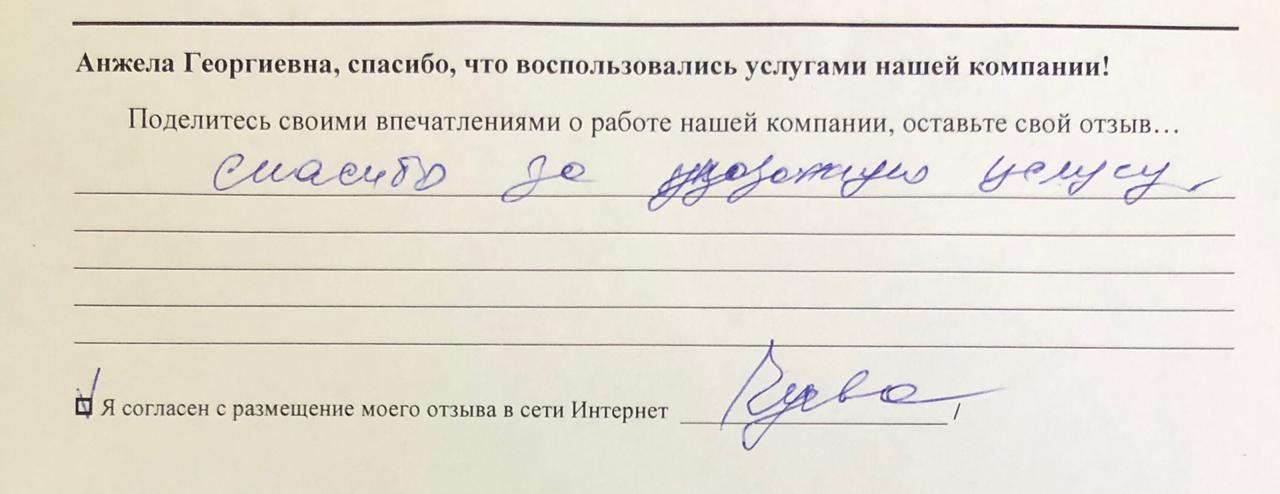 Анжела Георгиевна, спасибо, что воспользовались услугами нашей компании!
Поделитесь своими впечатлениями о работе нашей компании, оставьте свой отзыв…
спасибо за услугу
Я согласен с размещение моего отзыва в сети Интернет /